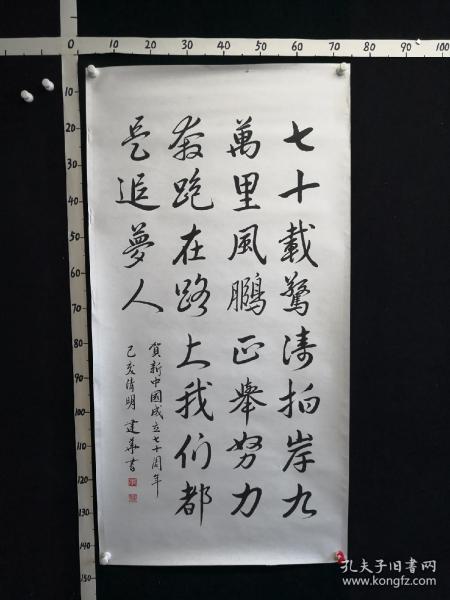 七十載驚濤拍岸九
萬里風鵬正舉努力
奔跑在路上我们都
是追夢人
賀新中國成立七十周年
己亥清明 建華書
0 10 20 30 40 50 60 70 80 90 100
10
20
30
40
50
60
70
80
90
100
110
120
130
140
150
孔夫子旧书网
www.kongfz.com